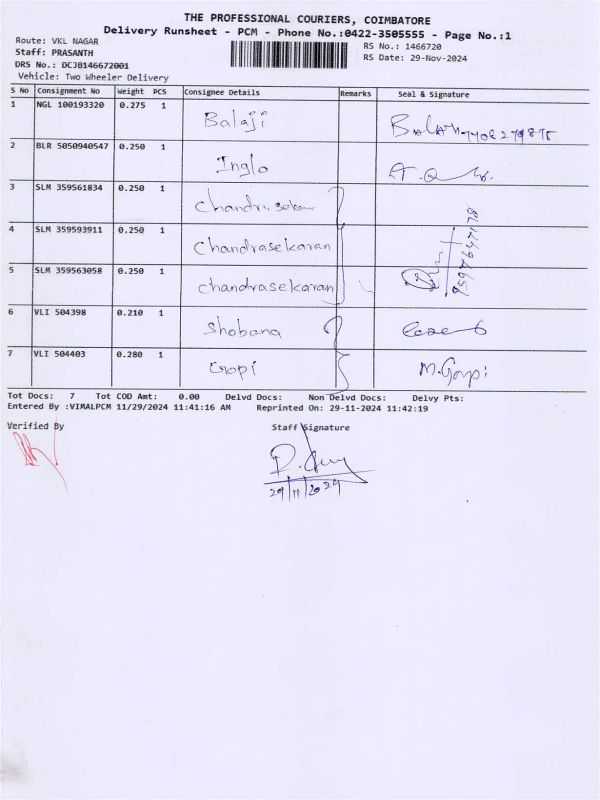 THE PROFESSIONAL COURIERS, COIMBATORE
Delivery Runsheet - PCM - Phone No.:0422-3505555 - Page No.:1
Route: VKL NAGAR
RS No.: 1466720
Staff: PRASANTH
RS Date: 29-Nov-2024
DRS No.: DCJB146672001
Vehicle: Two Wheeler Delivery
S No Consignment No Weight PCS Consignee Details Remarks Seal & Signature
1 NGL 100193320 0.275 1 Balaji
2 BLR 5050940547 0.250 1 Inglo
3 SLM 359561834 0.250 1 Chandrasekaran
4 SLM 359593911 0.250 1 Chandrasekaran
5 SLM 359563058 0.250 1 Chandrasekaran
6 VLI 504398 0.210 1 Shobana
7 VLI 504403 0.280 1 Gopi M.Gopi
Tot Docs: 7 Tot COD Amt: 0.00 Delvd Docs: Non Delvd Docs: Delvy Pts:
Entered By :VIMALPCM 11/29/2024 11:41:16 AM Reprinted On: 29-11-2024 11:42:19
Verified By Staff Signature
29/11/2024